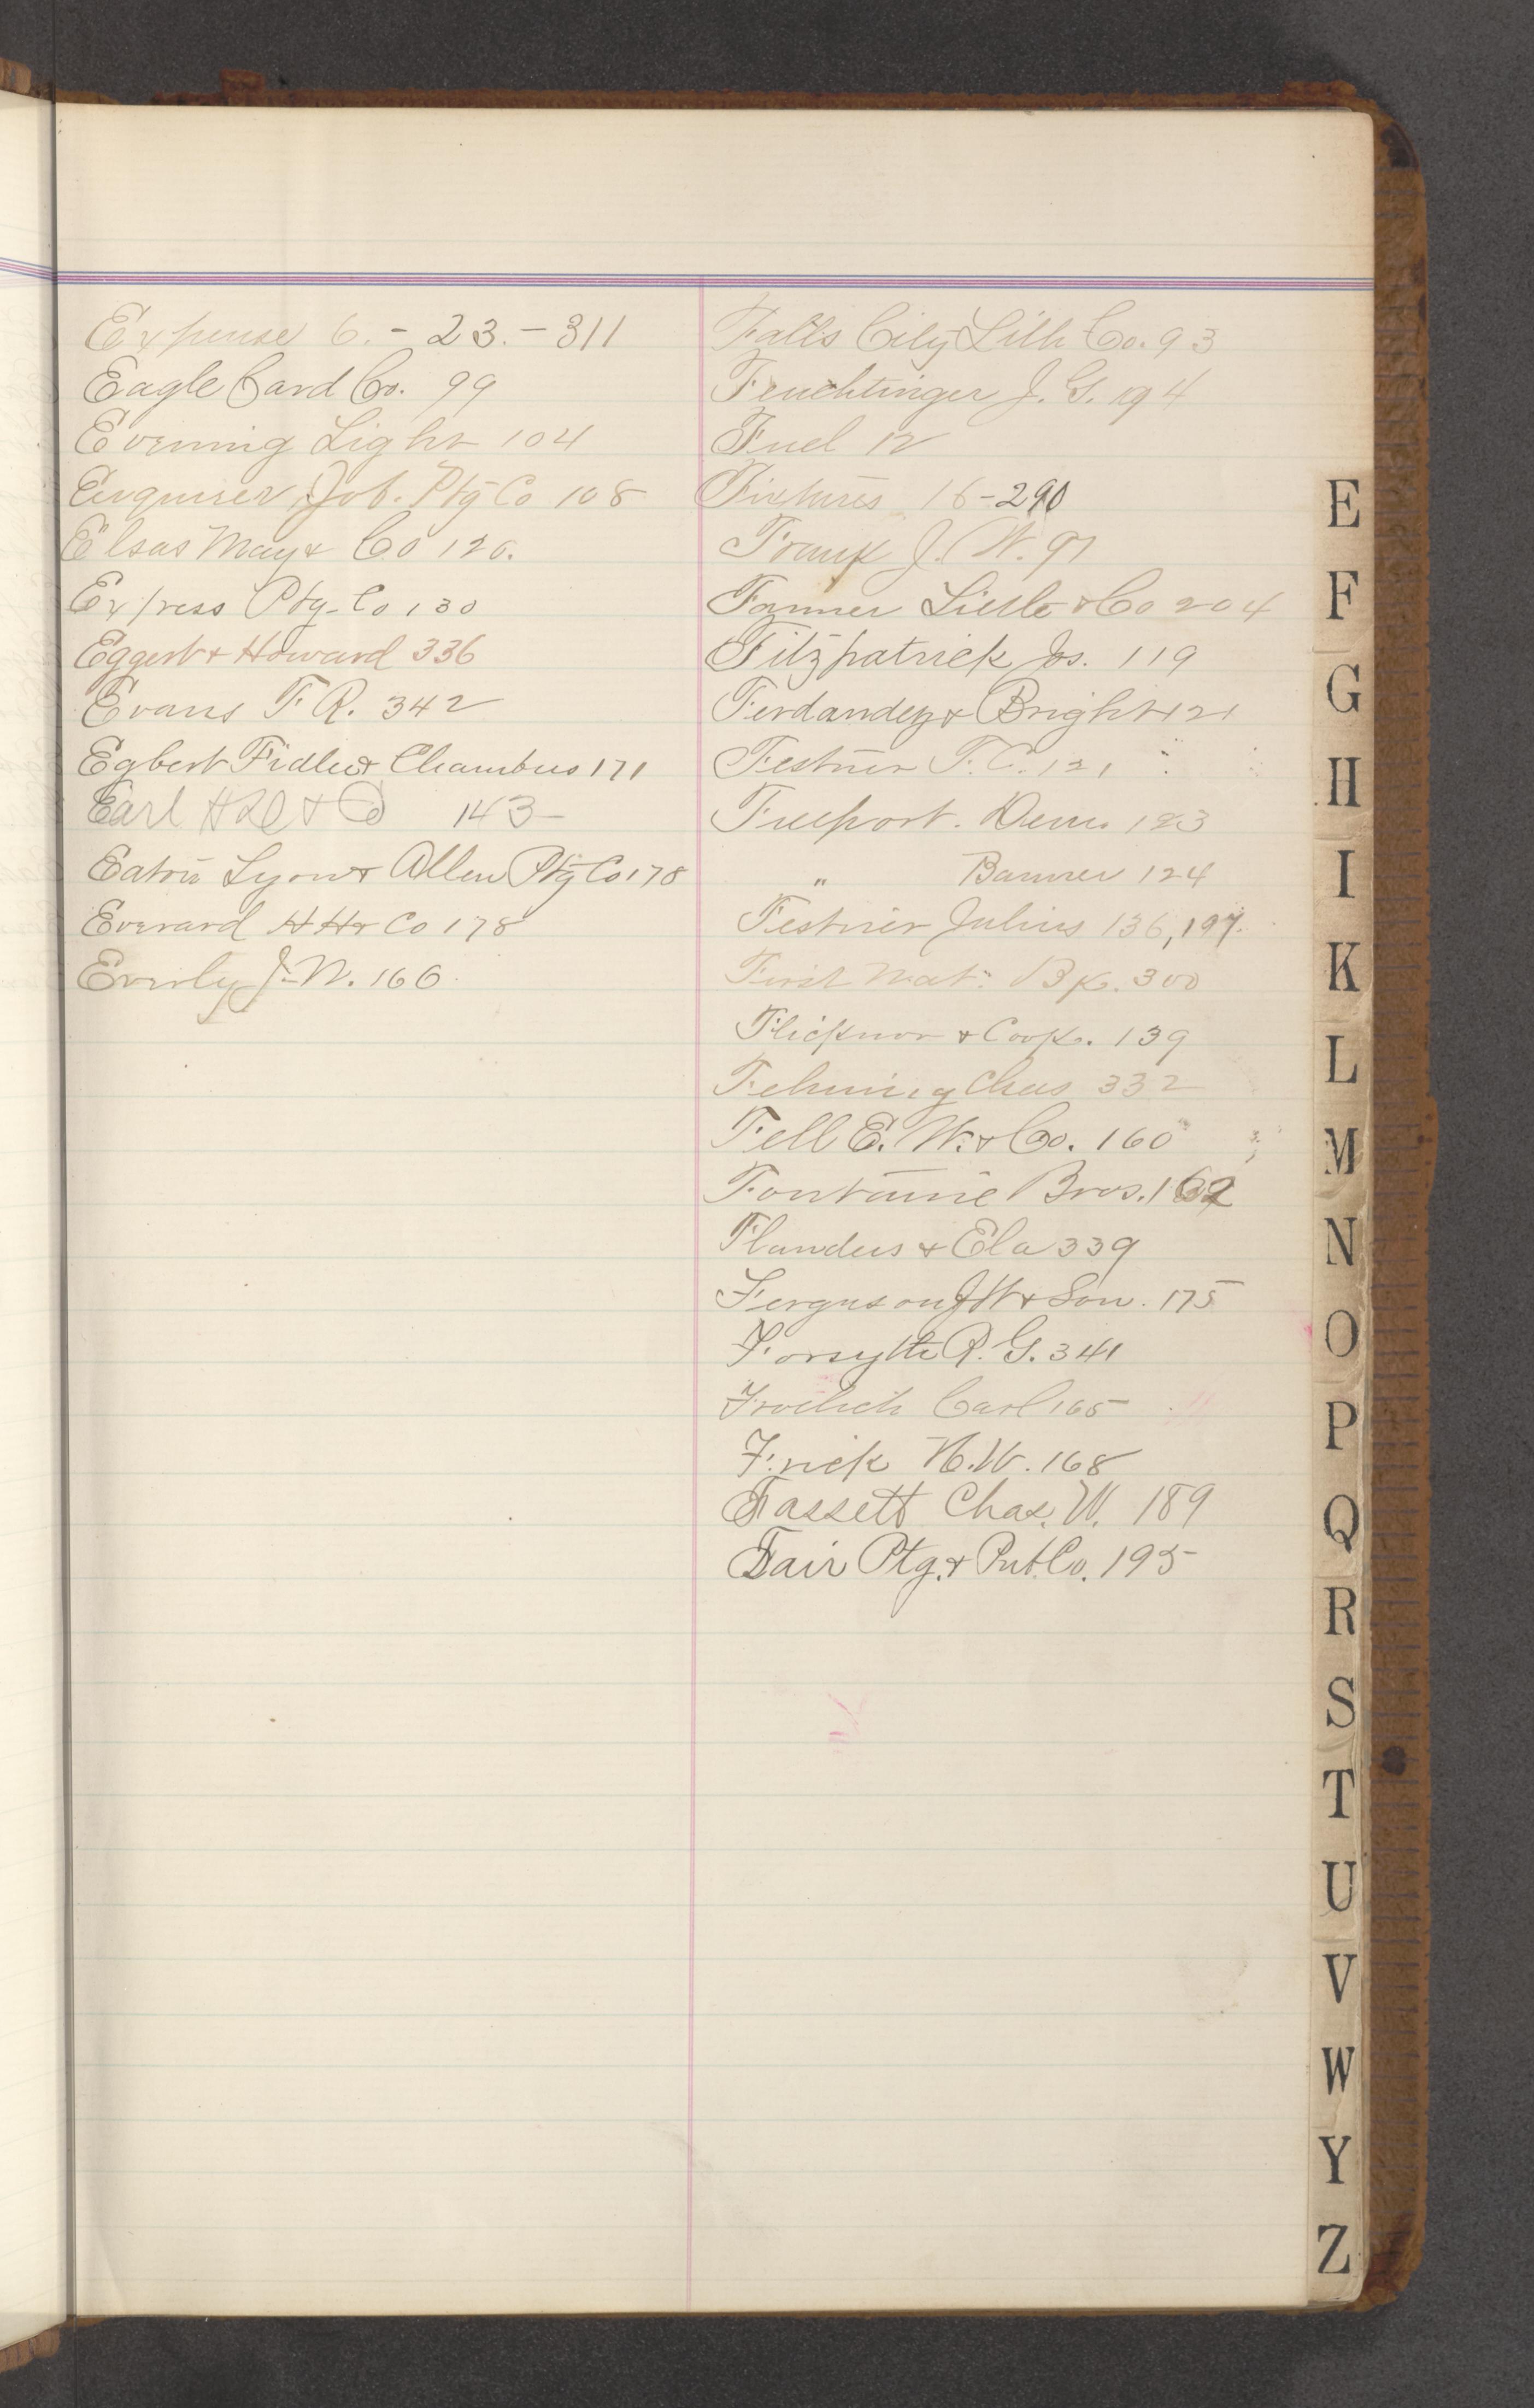 Expense 6. - 23. - 311
Eagle Card Co. 99
Evening Light 104
Enquirer Job. Ptg Co 108
Elsas May & Co 126.
Express Ptg. Co 130
Eggert & Howard 336
Evans F R. 342
Egbert Fidler & Chambers 171
Earl & Co 143-
Eaton Lyon & Allen Ptg Co 178
Everard H H & Co 178
Everly J. N. 166
Falls City Lith Co. 93
Feuchtinger J. G. 194
Fuel 12
Fixtures 16-290
Frank J. W. 97
Farmer Little & Co 204
Fitzpatrick Jos. 119
Ferdandez & Bright 121
Festner F. C. 121
Freeport. Dem. 123
" Banner 124
Festner Julius 136, 197.
First Nat. Bk. 300
Flicknor & Cook. 139
Fehmig Chas 332
Fell E. W. & Co. 160
Fontaine Bros. 162
Flanders & Ela 339
Ferguson JW & Son. 175
Forsythe R. G. 341
Froelich Carl 165
Frick H. W. 168
Fassett Chas. W. 189
Fair Ptg. & Pub. Co. 195
E
F
G
H
I
K
L
M
N
O
P
Q
R
S
T
U
V
W
Y
Z